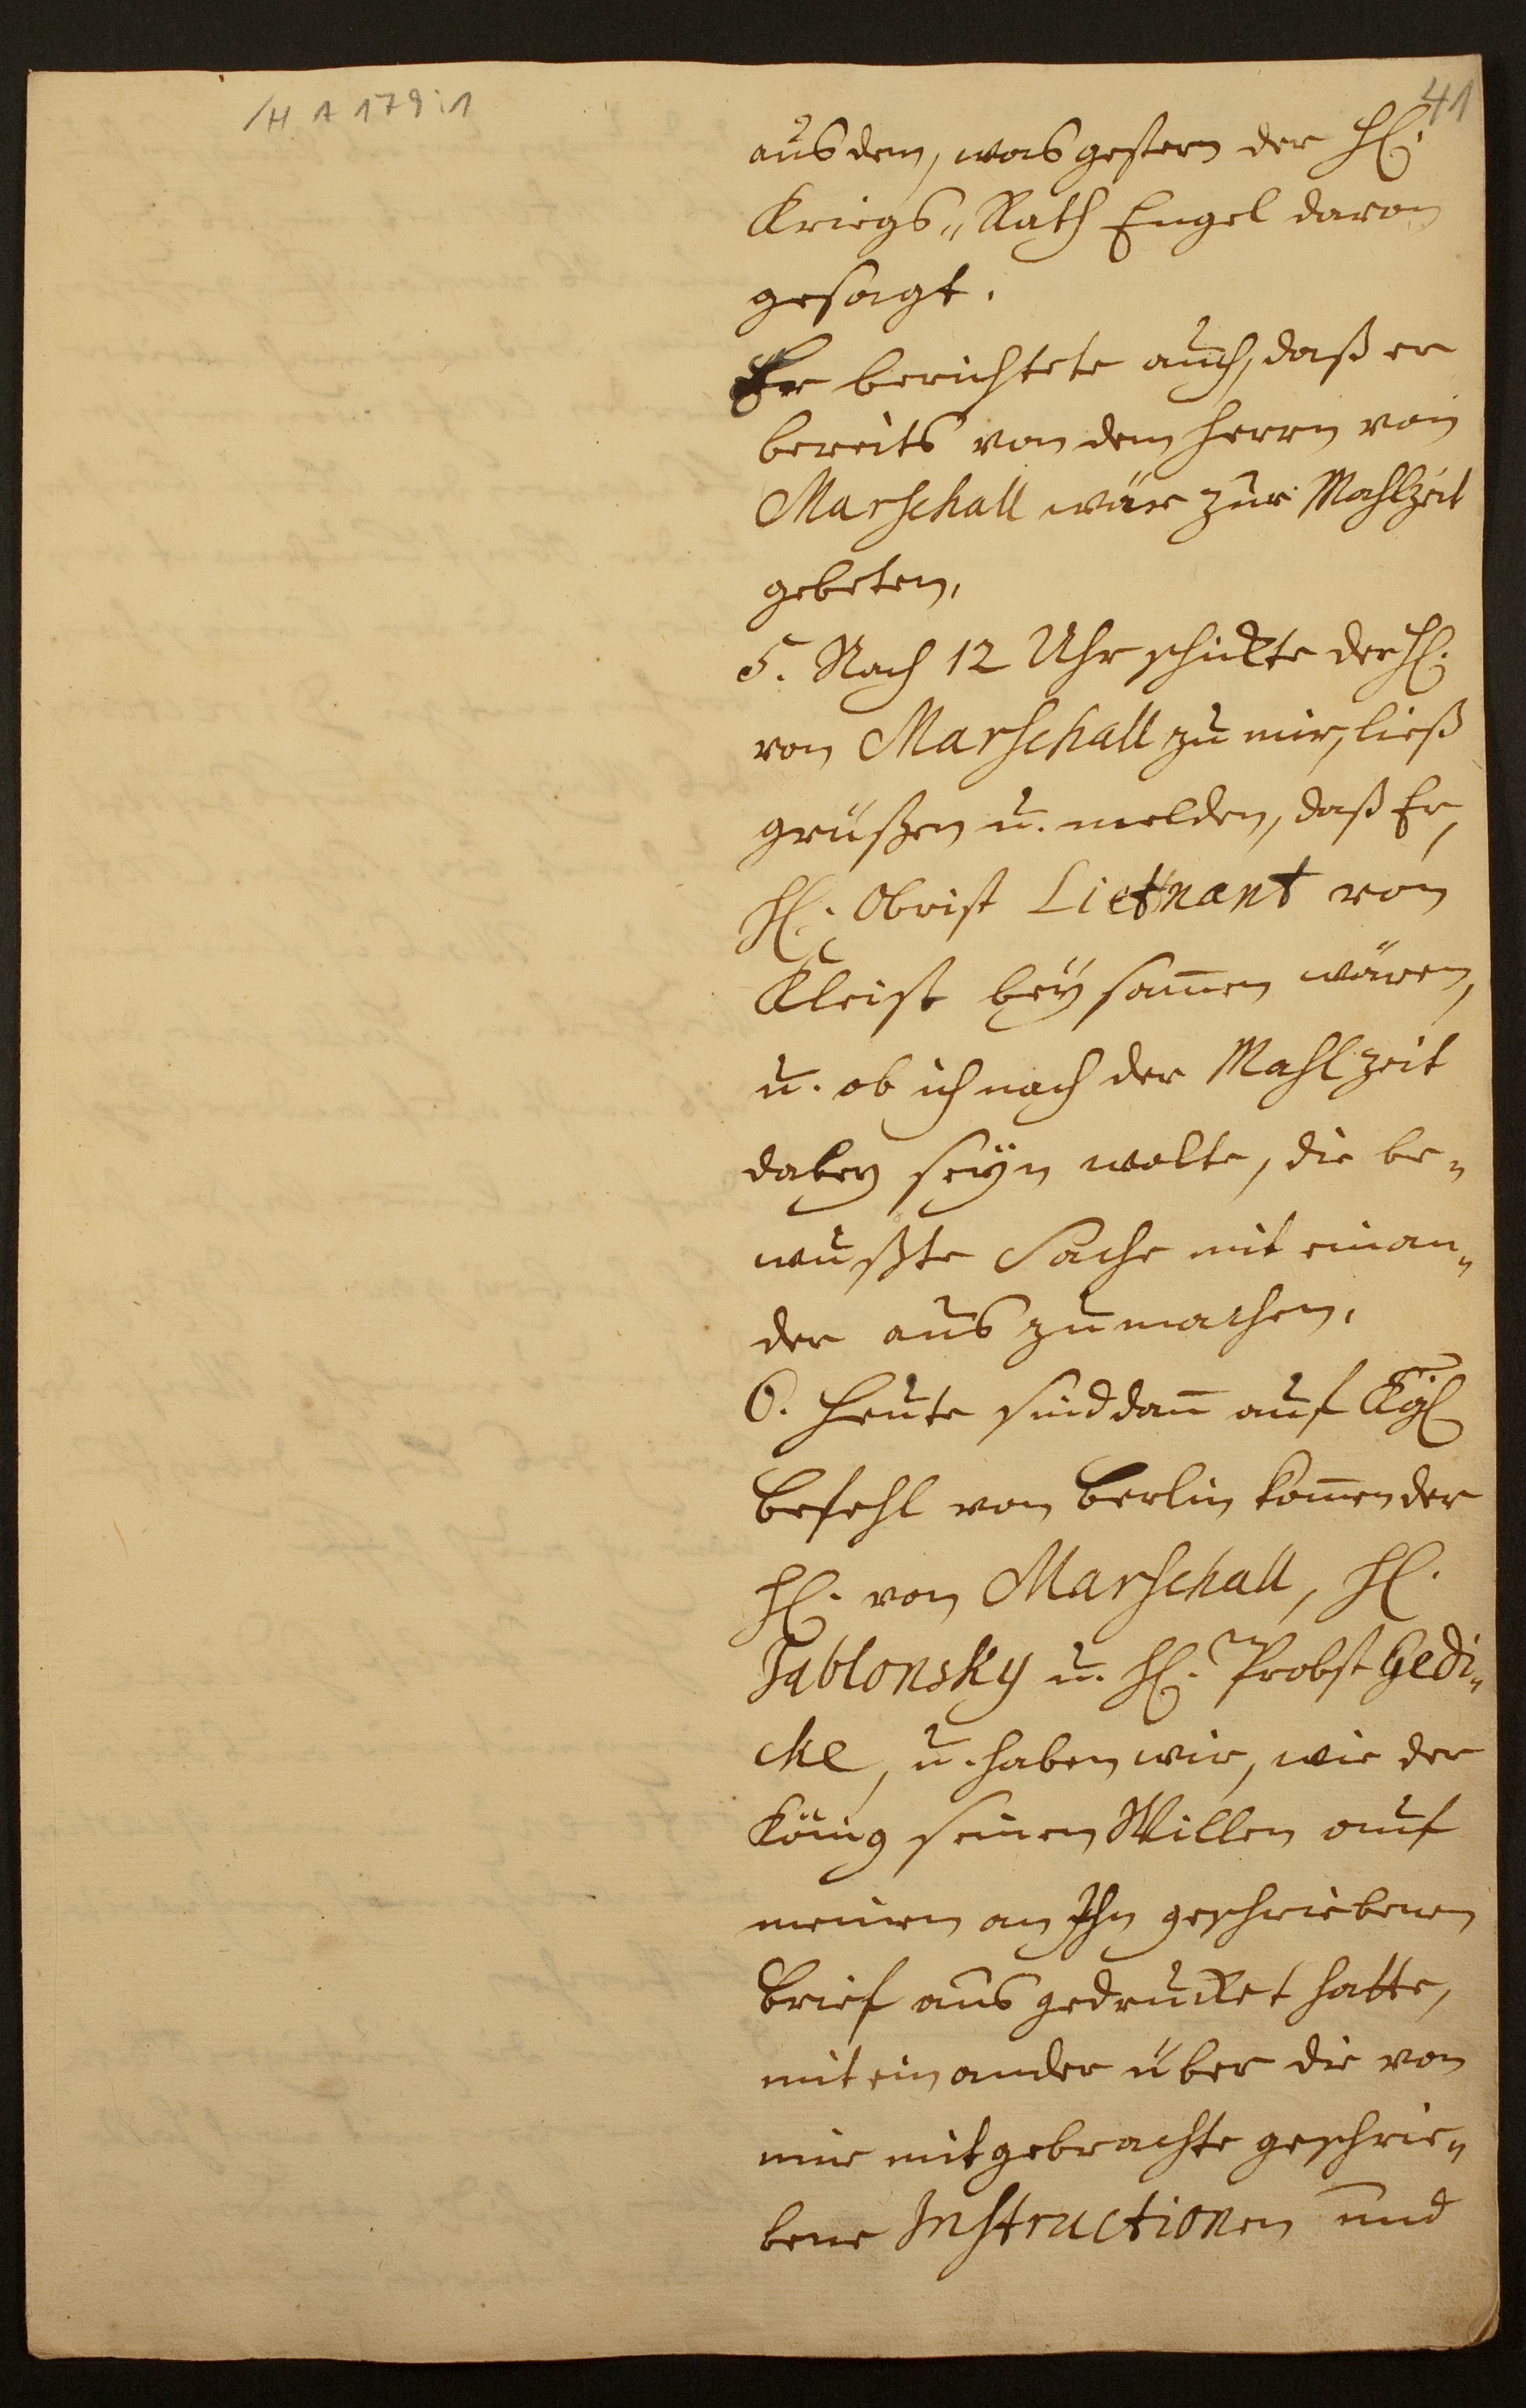 /H A 179:1
41
aus dem, was gestern der Hl.
Kriegs„Rath Engel davon
gesagt.
Er berichtete auch, daß er
bereits von dem Herrn von
Marschall wäre zur Mahlzeit
gebeten.
5. Nach 12 Uhr schickte der Hl.
von Marschall zu mir, ließ
grüßen u. melden, daß Er,
Hl. Obrist Lietnant von
Kleist beysam̄en wären,
u. ob ich nach der Mahlzeit
dabey seÿn wolte, die be„
wußte Sache mit einan„
der auszumachen.
6. Heute sind dan̄ auf Kgl
Befehl von Berlin kom̄en der
Hl. von Marschall, Hl.
Jablonsky u. Hl. Probst Gedi„
cke, u. haben wir, wie der
König seinen Willen auf
meinen an Ihn geschriebenen
Brief ausgedrucket hatte,
mit einander über die von
mir mitgebrachte geschrie„
bene Instructionen und